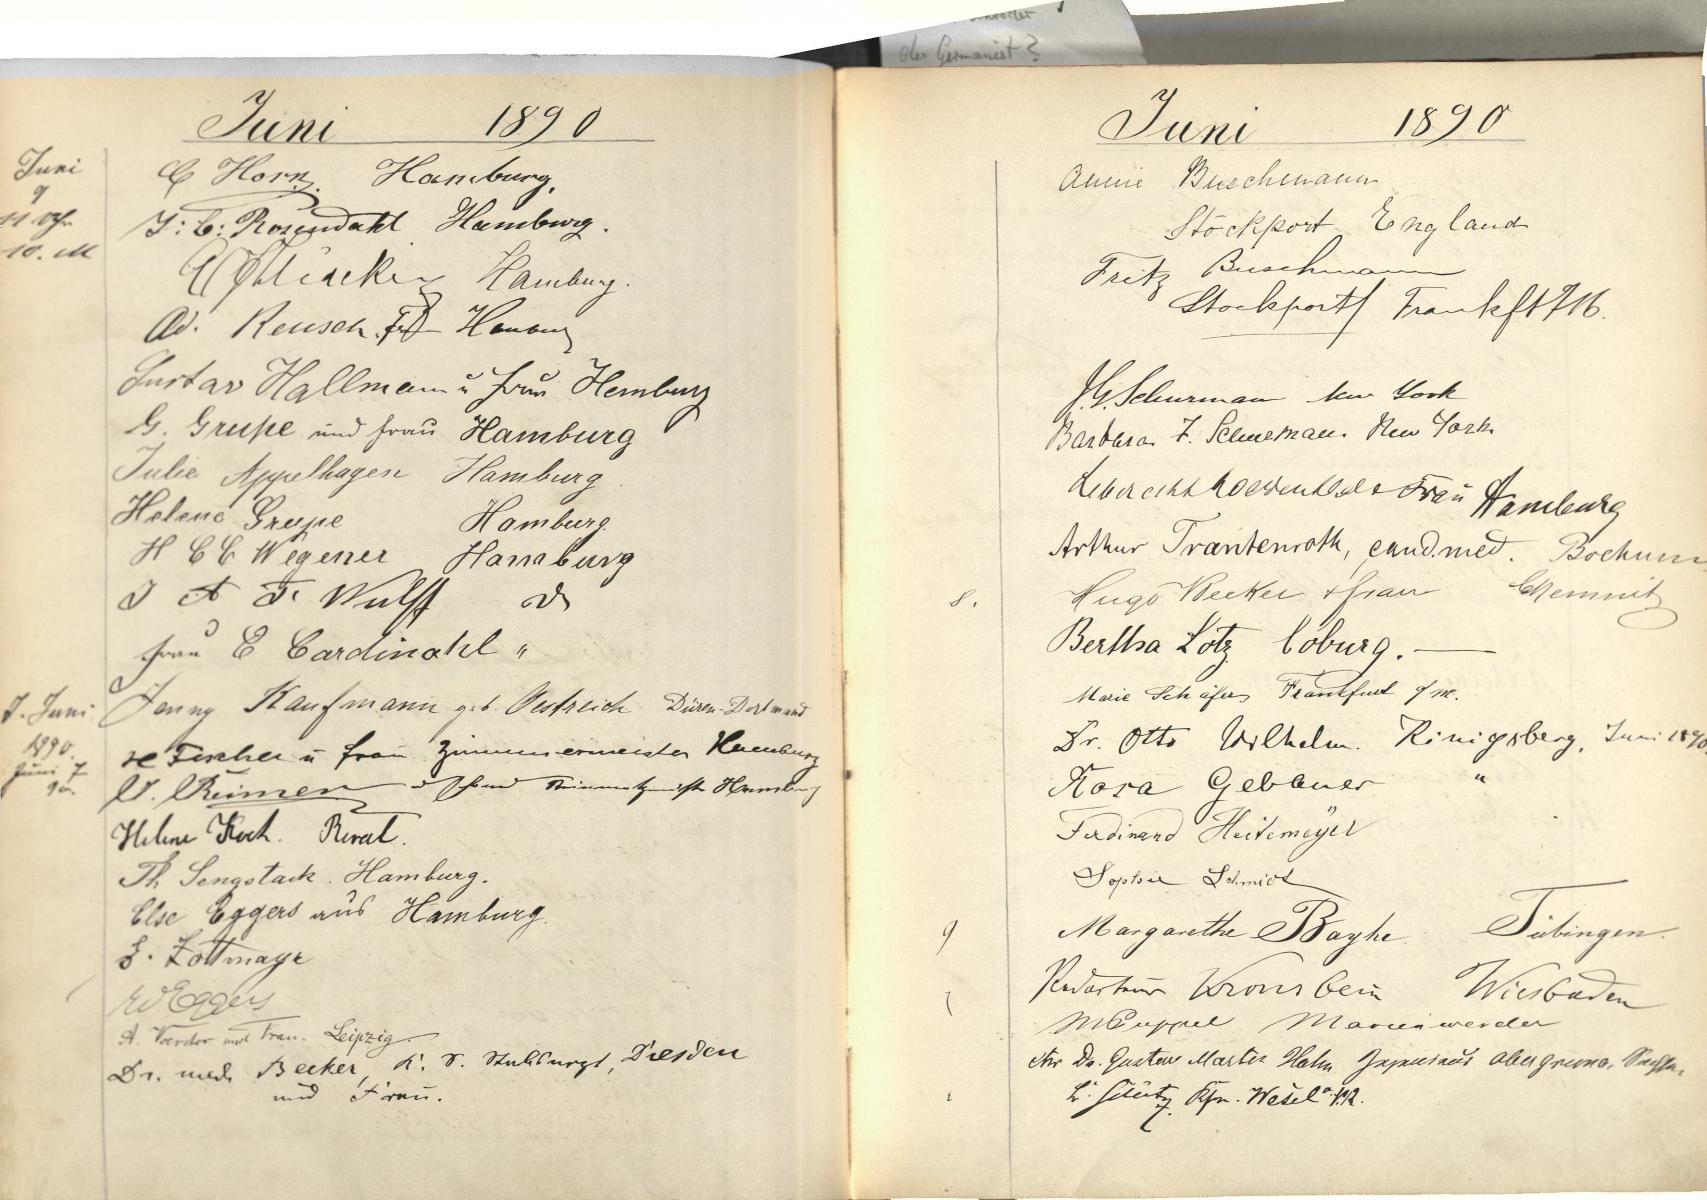 der Germanist?
Juni 1890
Juni
9
C Horn. Hamburg.
J: C: Rosendahl Hamburg.
Hamburg.
10. M
Ad. Reusch
Gustav Hallmann u Frau Hamburg
G. Grupe und Frau Hamburg
Julie Appelhagen Hamburg
Helene Grupe Hamburg
H C C Wegener Hamburg
J A F. Wulff do
Frau E Cardinahl "
7. Juni
1890.
Jenny Kaufmann geb. Oestreich Düren-Dortmund
Juni 7
Fischer u Frau Zimmermeister Hamburg
Hamburg
Helene Koch. Reval.
Th Sengstack. Hamburg.
Else Eggers aus Hamburg.
Zottmayr
Eggers
A. und Frau. Leipzig.
Dr. med. Becker, K. S. Dresden
und Frau.
Juni 1890
Annie Buschmann
Stockport England
Fritz Buschmann
Stockport/ Frankft
J. G. Schurman New York
Barbara F. Schurman New York
Leberecht & Frau Hamburg
Arthur Trantenroth, cand. med. Bochum
8.
Hugo Becker & Frau Chemnitz
Bertha Lotz Coburg.
Marie Schäfer Frankfurt a/m.
Dr. Otto Wilhelm. Königsberg, Juni 1890.
Rosa Gebauer "
Ferdinand Heitemeyer
Sophie Schmidt
9
Margarethe Bayhe. Tübingen.
Redacteur Kronsbein Wiesbaden
Marienwerder
Dr. Gustav Martin Hahn Obergruna.
Wesel a/R.